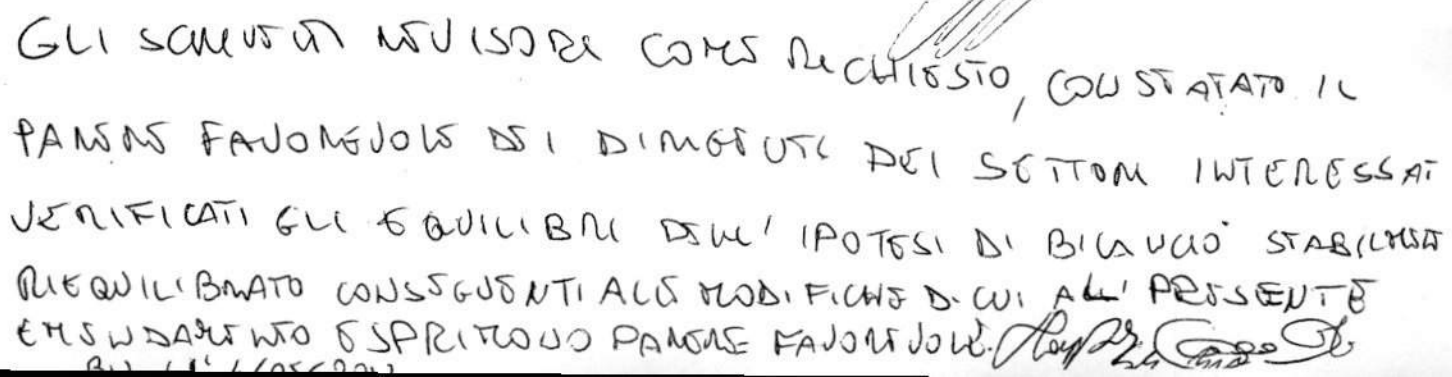 GLI SCRIVENTI REVISORI COME RICHIESTO, CONSTATATO IL
PARERE FAVOREVOLE DEI DIRIGENTI DEI SETTORI INTERESSATI
VERIFICATI GLI EQUILIBRI DELL' IPOTESI DI BILANCIO STABILMENTE
RIEQUILIBRATO CONSEGUENTI ALLE MODIFICHE DI CUI ALL' PRESENTE
EMENDAMENTO ESPRIMONO PARERE FAVOREVOLE.